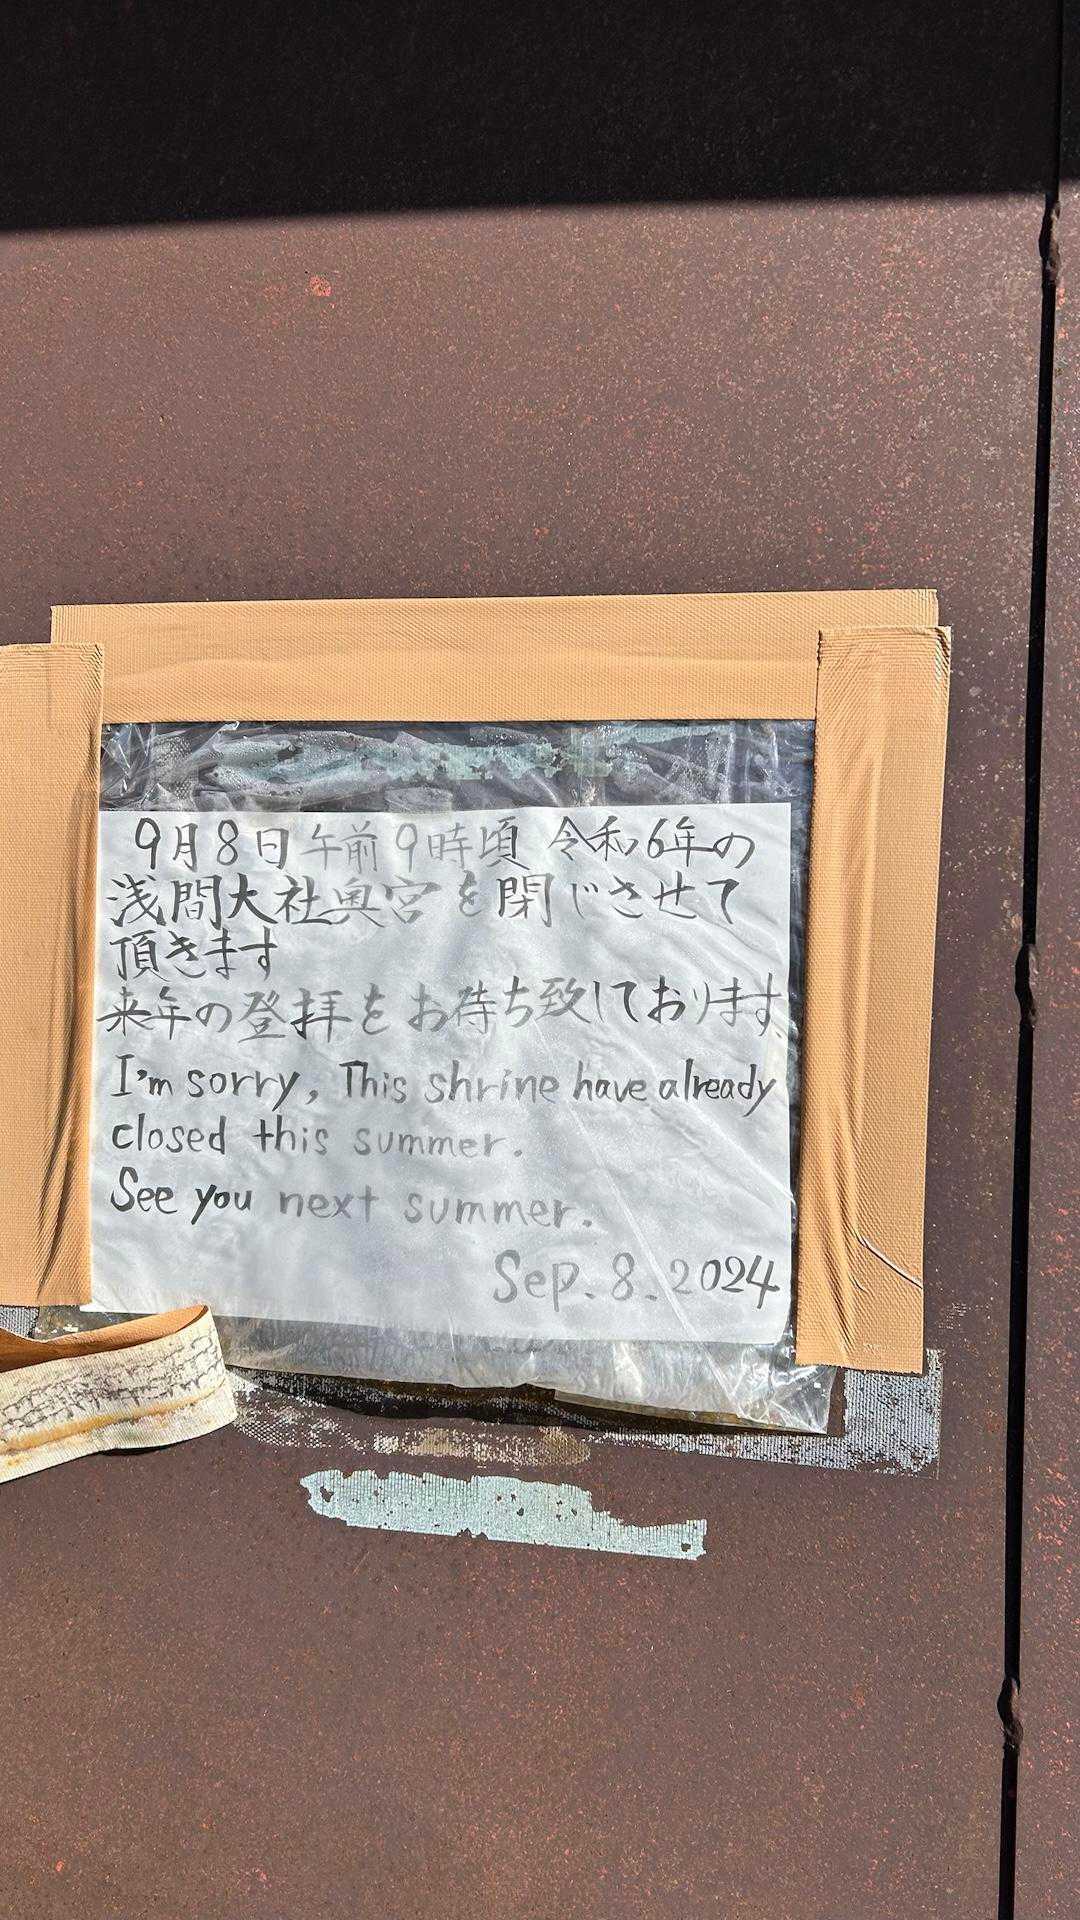 9月8日午前9時頃 令和6年の
浅間大社奥宮を閉じさせて
頂きます
来年の登拝をお待ち致しております
I'm sorry, This shrine have already
closed this summer.
See you next summer.
Sep. 8. 2024